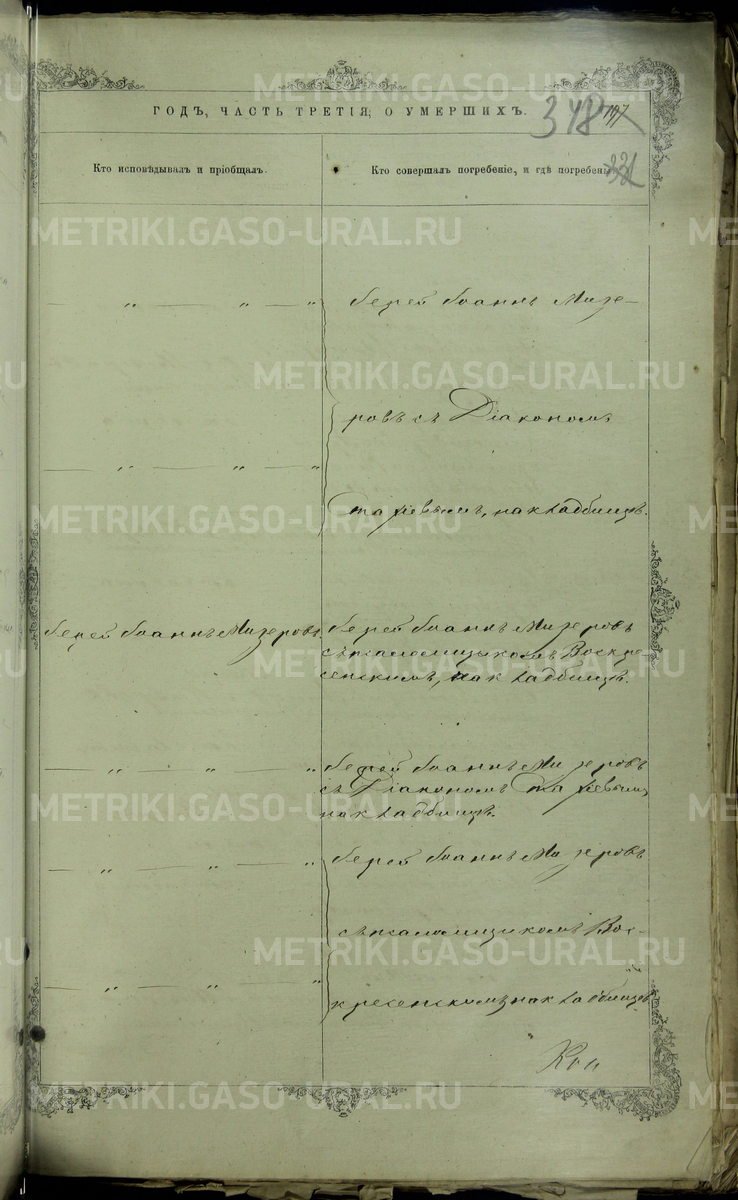 ГОДЪ, ЧАСТЬ ТРЕТІЯ, О УМЕРШИХЪ.
348
197
Кто исповѣдывалъ и пріобщалъ.
Кто совершалъ погребеніе, и гдѣ погребены.
— „ — „ — „
Іерей Іоаннъ Мизе-
ровъ съ Діакономъ
— „ — „ — „
на кладбищѣ.
Іерей Іоаннъ Мизеровъ
Іерей Іоаннъ Мизеровъ
съ псаломщикомъ Воскре-
сенскимъ, на кладбищѣ.
— „ — „ — „
Іерей Іоаннъ Мизеровъ
съ Діакономъ
на кладбищѣ.
— „ — „ — „
Іерей Іоаннъ Мизеровъ
съ псаломщикомъ Вос-
— „ — „ — „
кресенскимъ на кладбищѣ
METRIKI.GASO-URAL.RU